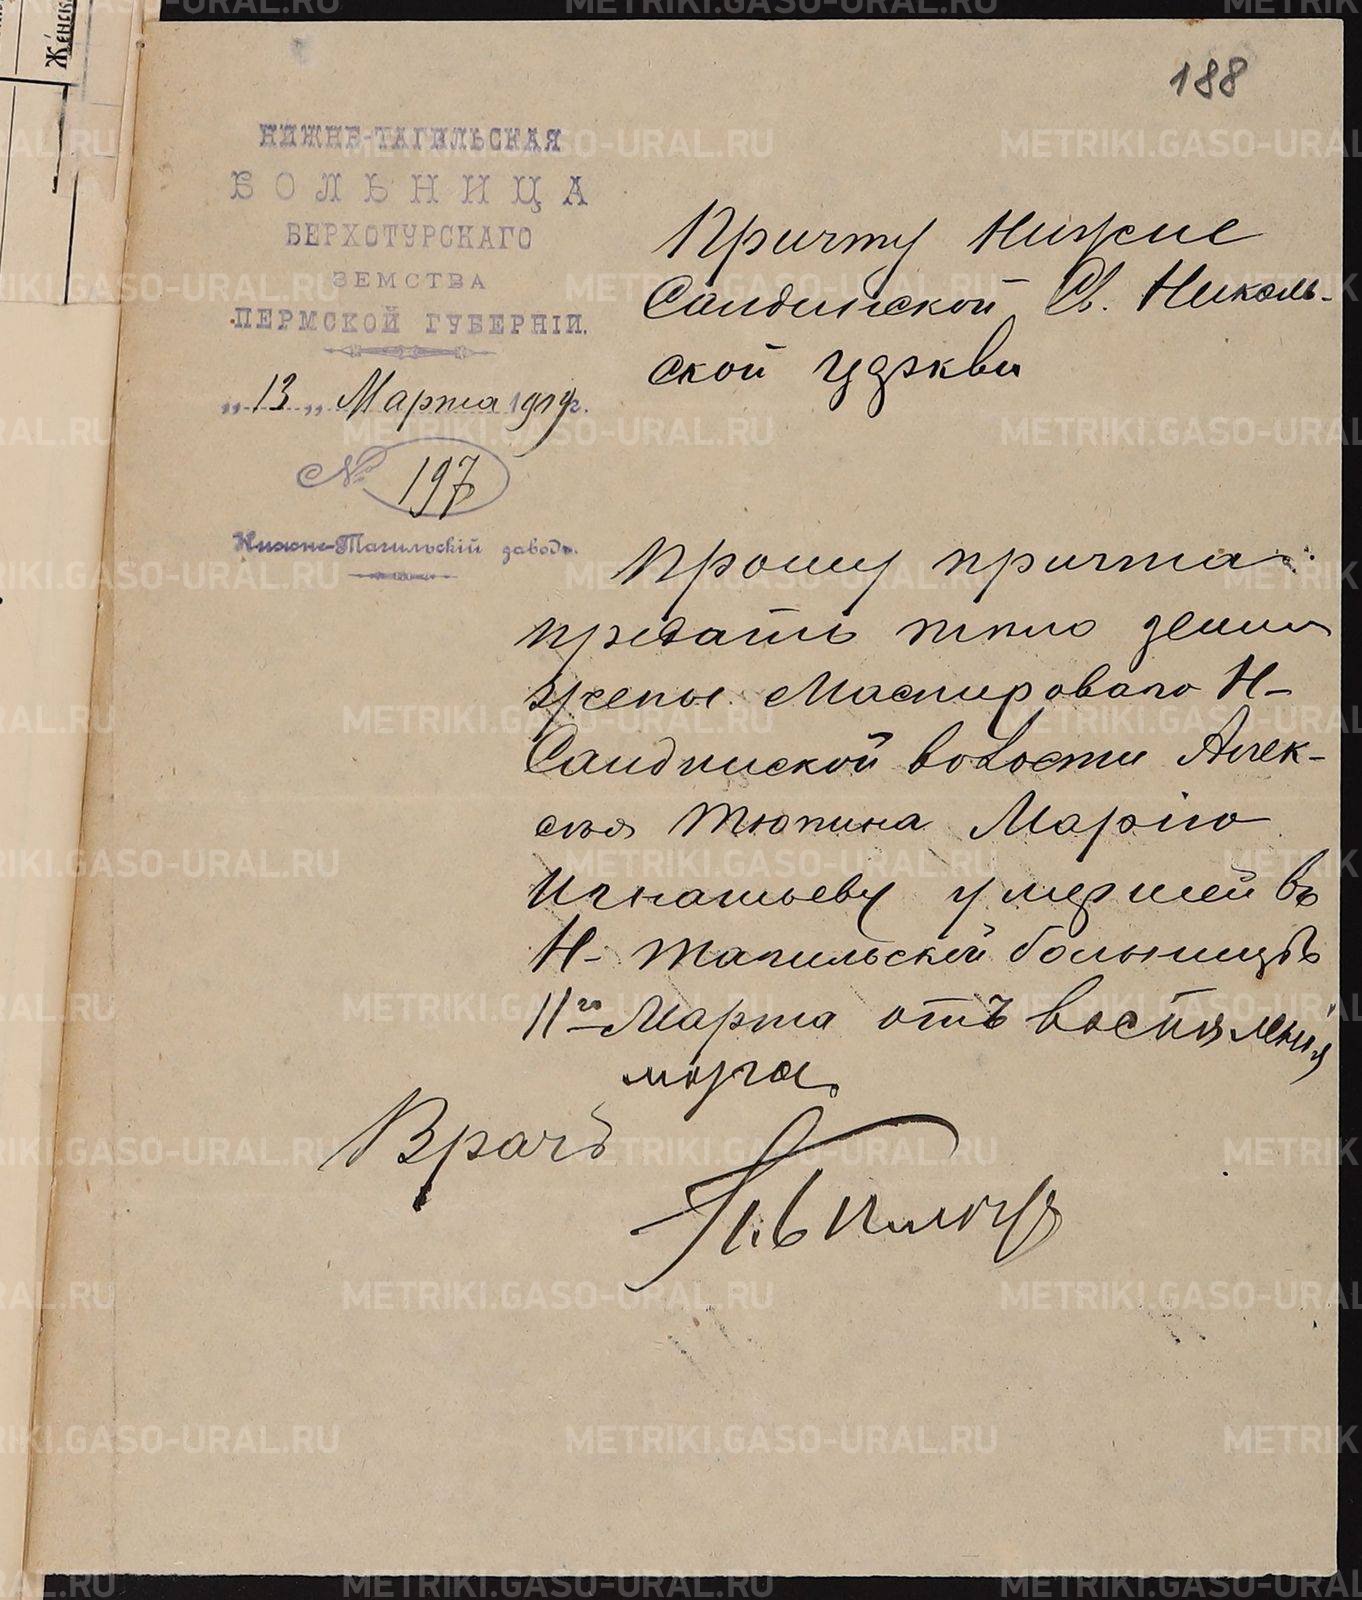 Женск
188
НИЖНЕ-ТАГИЛЬСКАЯ
БОЛЬНИЦА
ВЕРХОТУРСКАГО
ЗЕМСТВА
ПЕРМСКОЙ ГУБЕРНІИ.
"13" Марта 1919 г.
№ 197
Нижне-Тагильскій заводъ.
Причту Нижне
Салдинской Св. Николь-
ской церкви
Прошу причта
предать тело земли
жены Мастероваго Н-
Салдинской волости Алек-
сея Тюпина Марію
Игнатьеву умершей въ
Н- Тагильской больницѣ
11го Марта отъ воспаленія
мозга.
Врачъ
METRIKI.GASO-URAL.RU